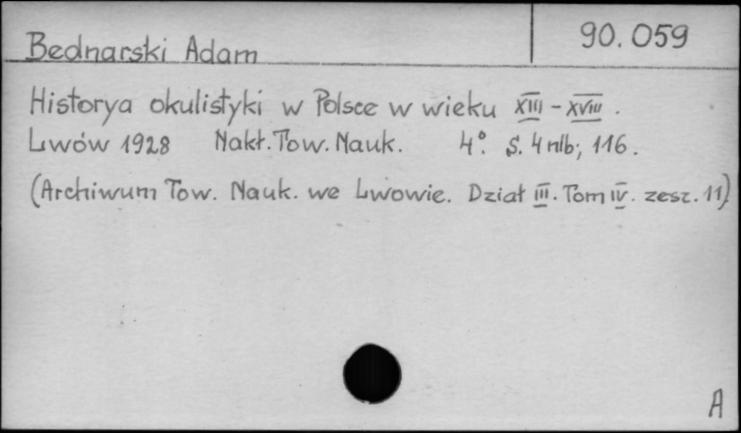 90.059
Bednarski Adam
Historya okulistyki w Polsce w wieku XIII - XVIII.
Lwów 1928 Nakł. Tow. Nauk. 4°. S. 4 nlb; 116.
(Archiwum Tow. Nauk. we Lwowie. Dział III. Tom IV. zesz. 11)
A